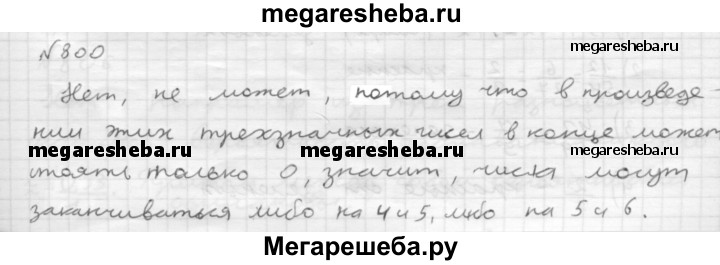 megaresheba.ru
№800
megaresheba.ru
Нет, не может, потому что в произведе-
нии этих трехзначных чисел в конце может
www.megaresheba.ru
www.megaresheba.ru
www.megaresheba.ru
стоять только 0, значит, числа могут
заканчиваться либо на 4 и 5, либо на 5 и 6.
Мегарешеба.ру